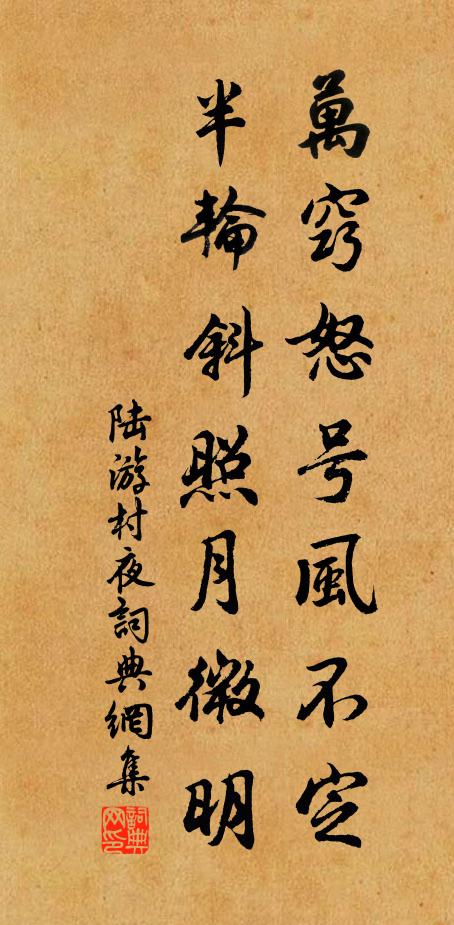 萬窍怒号風不定
半輪斜照月微明
陆游村夜詞典網集
詞典
网印